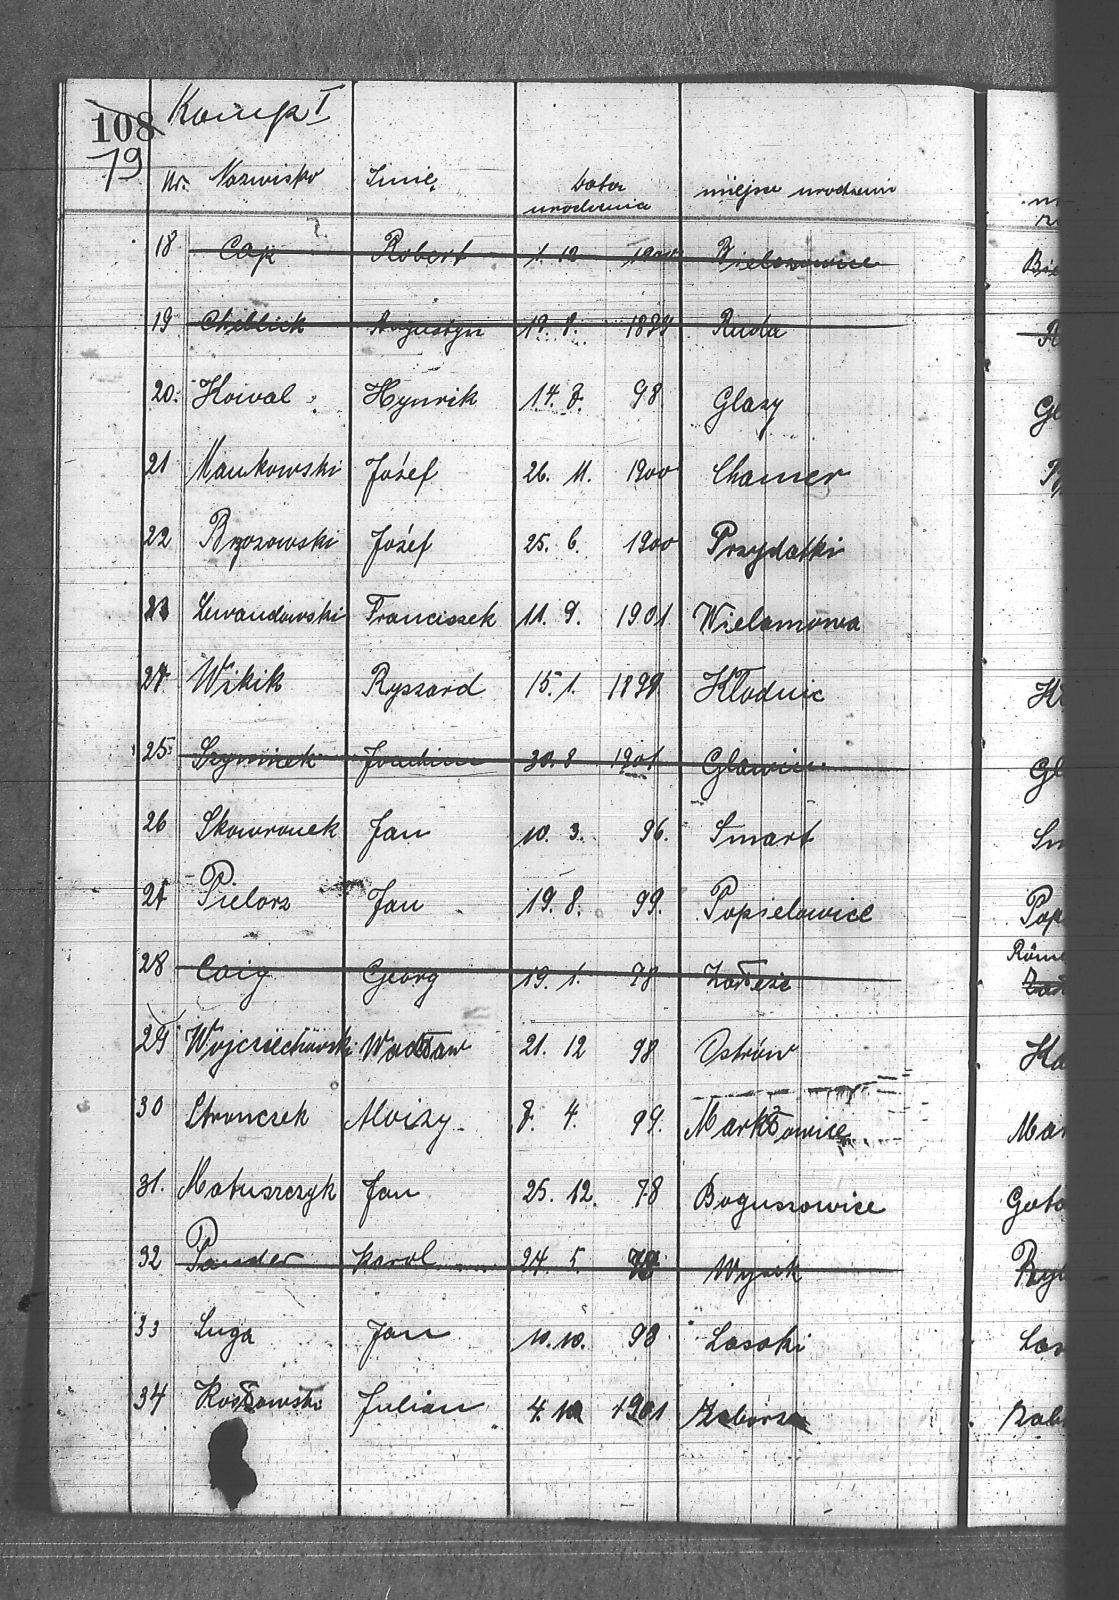 108 Komp I
79
Nr. Nazwisko Imię Data urodzenia miejsce urodzenia
18 Cop Robert 1. 12 1901 Bielszowice
19 Augustyn 18. 8. Ruda
20. Kowal Hynrik 14. 8. 98 Glazy
21 Mankowski Józef 26. 11. 1900 Chamer
22 Brzozowski Józef 25. 6. 1900 Przydatki
23 Lewandowski Franciszek 11. 9. 1901 Wielamowa
24 Wikik Ryszard 15. 1. 1899 Kłodnic
25 30. 8 1901
26 Skowronek Jan 10. 3. 96. Smart
27 Pielorz Jan 19. 8. 99. Popielowice
28 Georg 19. 1. 98 Załeże
29 Wojciechowski Wacław 21. 12 98 Ostrów
30 Stronczek Aloizy 8. 4. 99. Markłowice
31. Matuszczyk Jan 25. 12. 98 Boguszowice
32 Pander Karol 24. 5.
33 Luga Jan 10. 10. 98 Lasoki
34 Kosłowski Julian 4. 1901 Zaborze